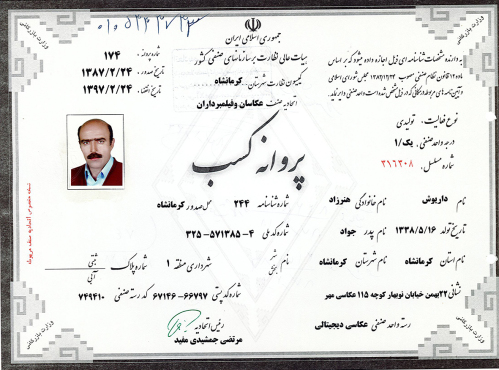 جمهوری اسلامی ایران
هیات عالی نظارت بر سازمانهای صنفی کشور
کمیسیون نظارت شهرستان... کرمانشاه
اتحادیه صنف عکاسان وفیلمبرداران
شماره پروانه: ۱۷۴
تاریخ صدور: ۱۳۸۷/۲/۲۴
تاریخ انقضاء: ۱۳۹۷/۲/۲۴
به دارنده مشخصات شناسنامه ای ذیل اجازه داده میشود که بر اساس
ماده ۱۲ قانون نظام صنفی مصوب ۱۳۸۲/۱۲/۲۴ مجلس شورای اسلامی
نوع فعالیت: تولیدی
درجه واحد صنفی: یک/۱
شماره مسلسل: ۲۱۶۲۰۸
پروانه کسب
نام داریوش نام خانوادگی هنرزاد شماره شناسنامه ۲۴۴ محل صدور کرمانشاه
تاریخ تولد ۱۳۳۸/۵/۱۶ نام پدر جواد شماره کد ملی ۴-۵۷۱۳۸۵-۳۲۵
نام استان کرمانشاه نام شهرستان کرمانشاه نام شهر بخش شهرداری منطقه ۱ شماره پلاک ثبتی آبی
نشانی ۲۲بهمن خیابان نوبهار کوچه ۱۱۵ عکاسی مهر شماره کد پستی ۶۶۷۹۷-۶۷۱۴۶ کد رسته صنفی ۷۴۹۴۱۰
رسته واحد صنفی عکاسی دیجیتالی
رئیس اتحادیه
مرتضی جمشیدی مفید
وزارت بازرگانی
وزارت بازرگانی
وزارت بازرگانی
وزارت بازرگانی
نسخه مخصوص اتحادیه صنف مربوطه